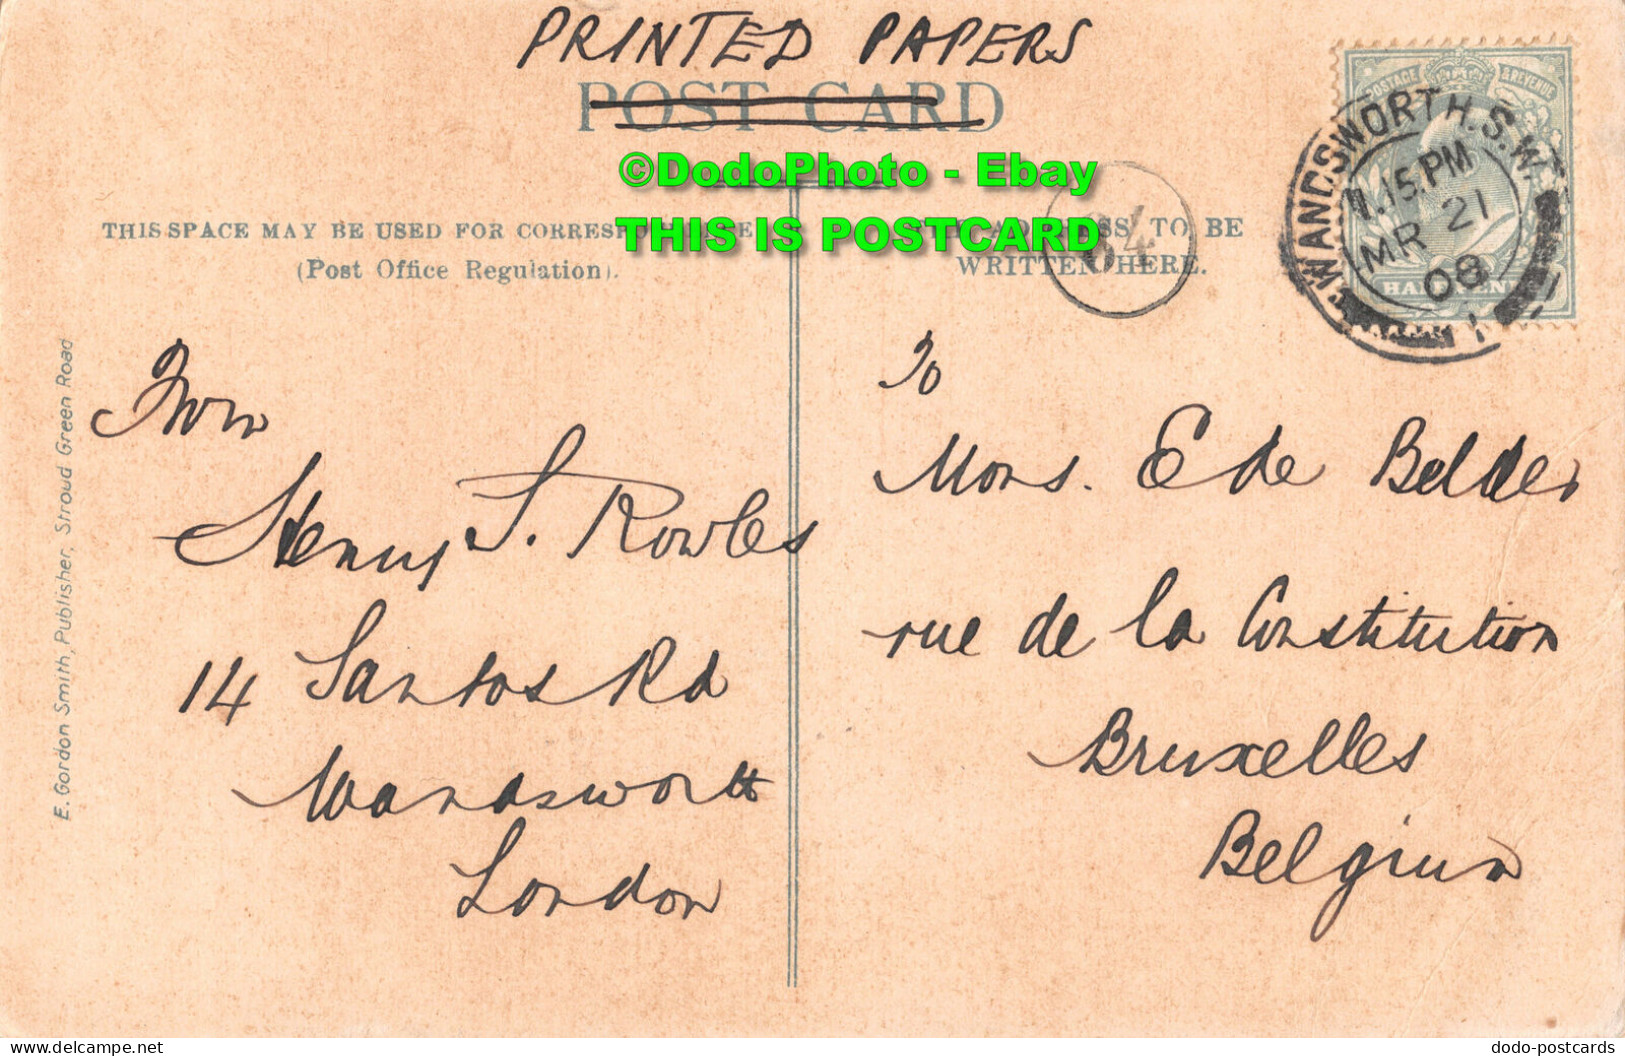 PRINTED PAPERS
POST CARD
©DodoPhoto - Ebay
THIS IS POSTCARD
THIS SPACE MAY BE USED FOR
(Post Office Regulation).
TO BE
WRITTEN HERE.
64
POSTAGE & REVENUE
WANDSWORTH.S.W.
11.15.PM
MR 21
08
E. Gordon Smith, Publisher, Stroud Green Road
From
Henry S. Rowles
14 Santos Rd
Wandsworth
London
To
Mons. E de Belder
rue de la Constitution
Bruxelles
Belgium
dodo-postcards